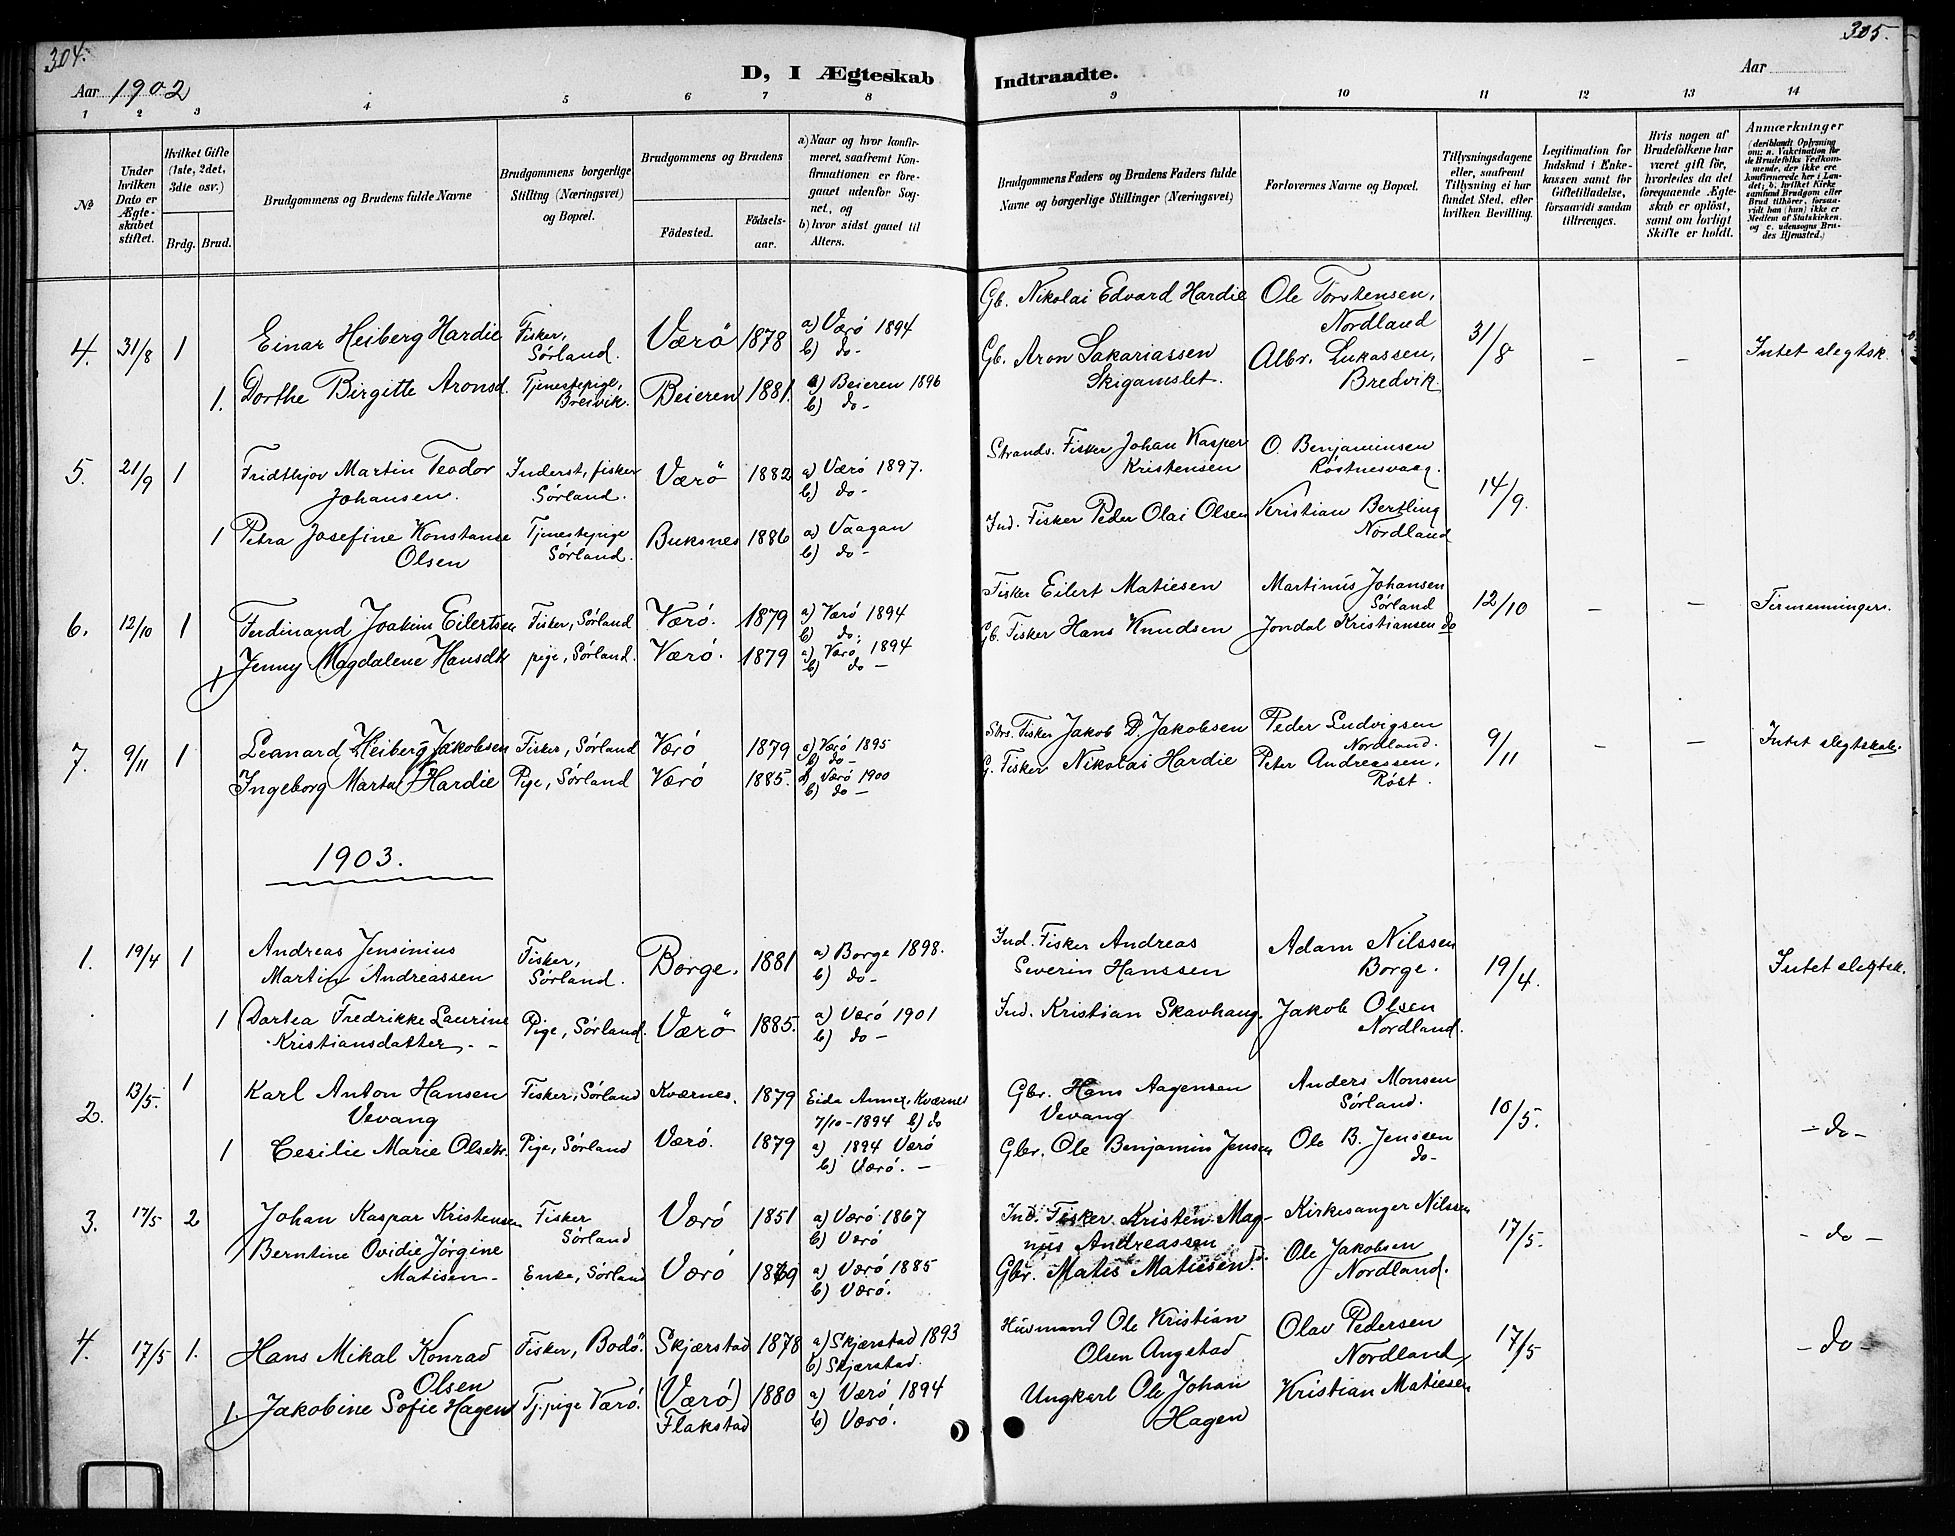 304.
305.
D, I Ægteskab Indtraadte.
Aar 1902
Aar
1 2 3 4 5 6 7 8 9 10 11 12 13 14
№
Under hvilken Dato er Ægteskabet stiftet.
Hvilket Gifte (1ste, 2det, 3die osv.)
Brdg. Brud.
Brudgommens og Brudens fulde Navne
Brudgommens borgerlige Stilling (Næringsvei) og Bopæl.
Brudgommens og Brudens
Fødested.
Fødselsaar.
a) Naar og hvor konfirmeret, saafremt Konfirmationen er foregaaet udenfor Sognet, og
b) hvor sidst gaaet til Alters.
Brudgommens Faders og Brudens Faders fulde Navne og borgerlige Stillinger (Næringsvei)
Forlovernes Navne og Bopæl.
Tillysningsdagene eller, saafremt Tillysning ei har fundet Sted, efter hvilken Bevilling.
Legitimation for Indskud i Enkekassen samt for Giftetilladelse, forsaavidt saadan tiltrænges.
Hvis nogen af Brudefolkene har været gift før, hvorledes da det foregaaende Ægteskab er opløst, samt om lovligt Skifte er holdt.
Anmærkninger (deriblandt Oplysning om: a. Vakcination for de Brudefolks Vedkommende, der ikke ere konfirmerede her i Landet; b. hvilket Kirkesamfund Brudgom eller Brud tilhører, forsaavidt han (hun) ikke er Medlem af Statskirken, og c. udensogns Brudes Hjemsted.)
4. 31/8 1 Einar Heiberg Hardie Fisker, Sørland. Værö 1878 a) Værö 1894 b) do- Gb. Nikolai Edvard Hardie Ole Torstensen, Nordland 31/8 - - Intet slegtsk.
1. Dorthe Birgitte Aronsd. Tjenestepige, Breivik. Beieren 1881. a) Beieren 1896 b) do- Gb. Aron Sakariassen Skigamslet. Albr. Lukassen, Bredvik.
5. 21/9 1 Fridthjov Martin Teodor Johansen. Inderst, fisker Sørland. Værö 1882 a) Værö 1897. b) do- Strands. Fisker Johan Kasper Kristensen O. Benjaminsen Røstnesvaag. 14/9.
1 Petra Josefine Konstanse Olsen Tjenestepige Sørland. Buksnes 1886 a) Vaagan b) do- Ind. Fisker Peder Olai Olsen Kristian Bertling Nordland
6. 12/10 1 Ferdinand Joakim Eilertsen Fisker, Sørland Værö. 1879 a) Værö 1894 b) do. Fisker Eilert Matiesen Martinus Johansen Sørland 12/10 - - Firmenninger.
1 Jenny Magdalene Hansdtr pige, Sørland. Værö. 1879 a) Værö 1894 b) do- Gb. Fisker Hans Knudsen Jondal Kristiansen do
7. 9/11 1 Leonard Heiberg Jakobsen Fisker, Sørland Værö 1879 a) Værö 1895 b) do- Strs. Fisker Jakob D. Jakobsen Peder Ludvigsen Nordland. 9/11 - - Intet slegtskab.
1 Ingeborg Marta Hardie Pige, Sørland Værö 1885. a) Værö 1900 b) do- G. Fisker Nikolai Hardie Peter Andreassen, Røst.
1903.
1. 19/4 1 Andreas Jensinius Martin Andreassen Fisker, Sørland. Borge. 1881 a) Borge 1898. b) do- Ind. Fisker Andreas Severin Hanssen Adam Nilssen Borge. 19/4. Intet slegtsk.
1 Dortea Fredrikke Laurine Kristiansdatter. - Pige, Sørland. Værö 1885. a) Værö 1901 b) do- Ind. Kristian Skavhaug. Jakob Olsen Nordland.
2. 13/5. 1 Karl Anton Hansen Vevang Fisker, Sørland Kværnes. 1879 Eida Annex, Kværnes 7/10-1894 b) do Gbr. Hans Aagensen Vevang Anders Monsen Sørland. 10/5. - do -
1 Cesilie Marie Olsdtr. Pige, Sørland Værö. 1879 a) 1894 Værö b) Værö. - Gbr. Ole Benjamin Jensen Ole B. Jenssen do-
3. 17/5 2 Johan Kaspar Kristensen Fisker Sørland Værö 1851 a) Værö 1867 b) Værö Ind. Fisker Kristen Magnus Andreassen Kirkesanger Nilssen 17/5. - do -
Berntine Ovidie Jørgine Matisen- Enke, Sørland Værö 1869 a) Værö 1885 b) Værö. Gbr. Matis Matiesen. Ole Jakobsen Nordland.
4. 17/5 1. Hans Mikal Konrad Olsen Fisker, Bodö. Skjærstad 1878 a) Skjærstad 1893 b) Skjærstad. Husmand Ole Kristian Olsen Angstad Olav Pedersen Nordland, 17/5 - do -
1. Jakobine Sofie Hagen Tj.pige Værö. (Værö) Flakstad 1880 a) Værö 1894 b) Værö. Ungkarl Ole Johan Hagen Kristian Matiesen